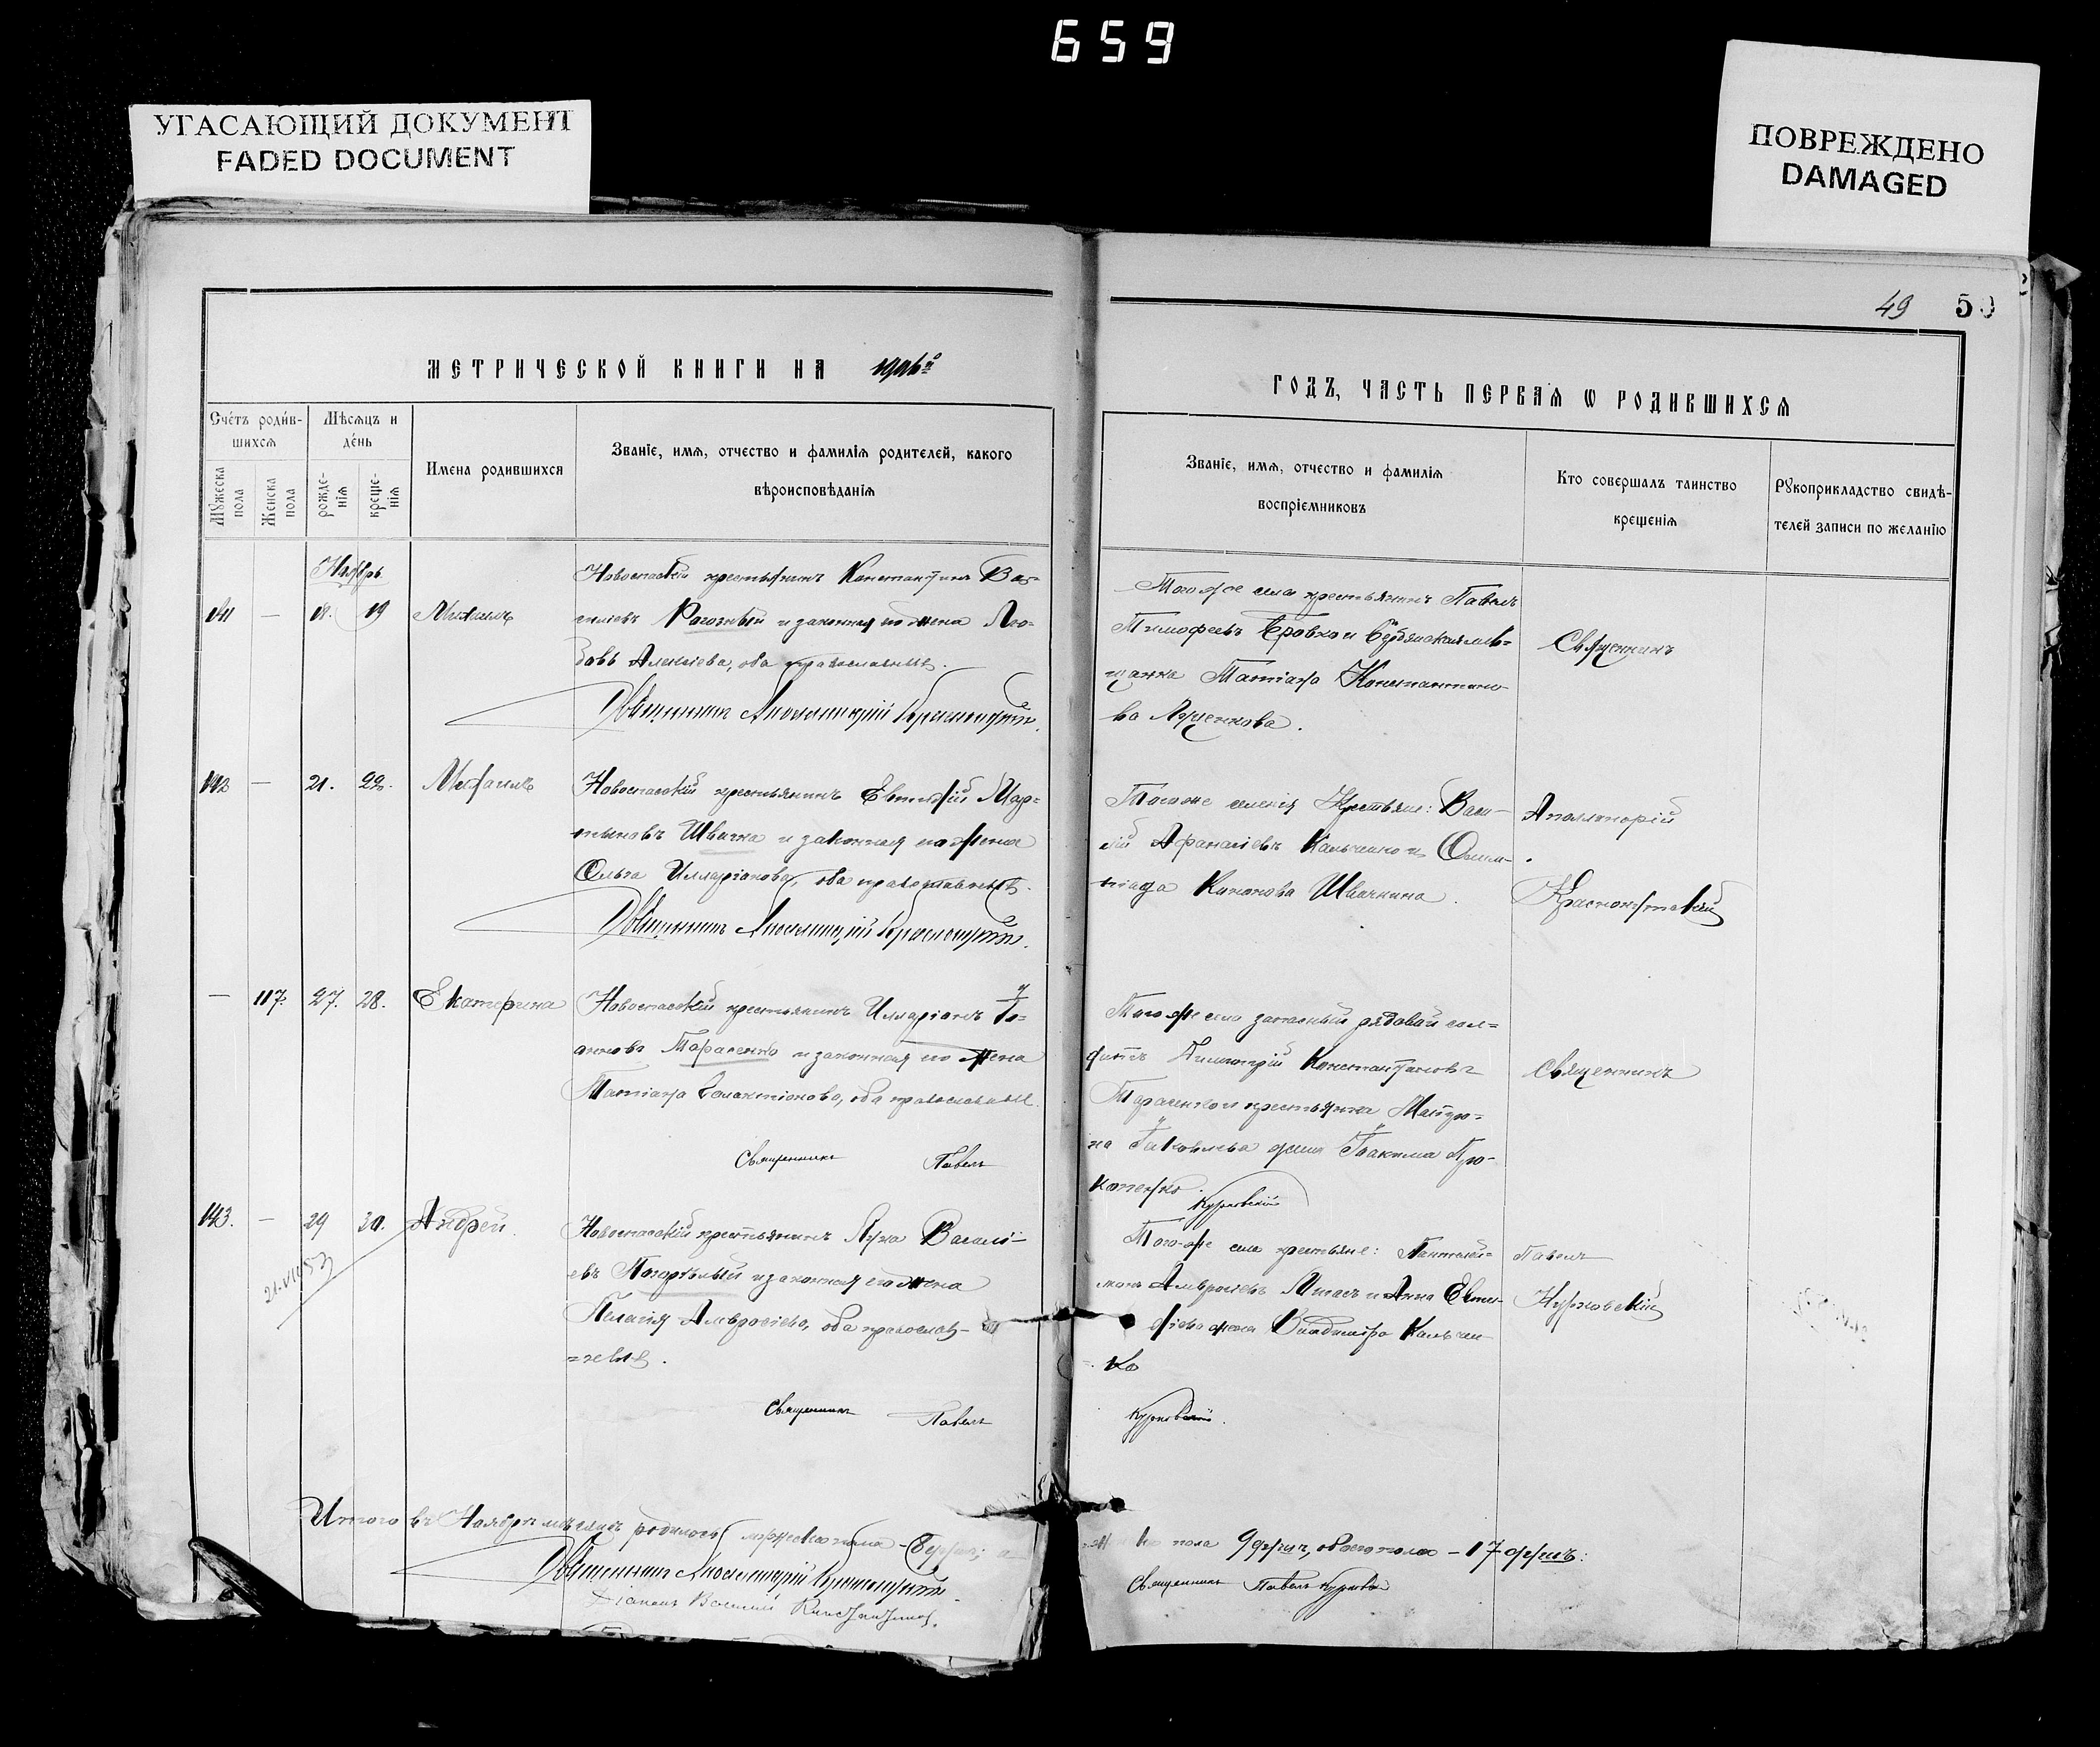 659
УГАСАЮЩИЙ ДОКУМЕНТ
FADED DOCUMENT
ПОВРЕЖДЕНО
DAMAGED
49 50
МЕТРИЧЕСКОЙ КНИГИ НА
ГОДЪ, ЧАСТЬ ПЕРВАѦ Ѡ РОДИВШИХСѦ
Счетъ родив-
шихсѧ
Мѣсѧцъ и
день
Мужеска
пола
Женска
пола
рожде-
нїѧ
креще-
нїѧ
Имена родившихсѧ
Званїе, имѧ, отчество и фамилїѧ родителей, какого
вѣроисповѣданїѧ
Званїе, имѧ, отчество и фамилїѧ
воспрїемниковъ
Кто совершалъ таинство
крещенїѧ
Рукоприкладство свидѣ-
телей записи по желанїю
Ноябрь
141 — 18. 19 Михаилъ
Новоспаскій крестьянинъ Константинъ Ва-
силіевъ Рогозный и законная его жена Лю-
бовь Алексіева, оба православные.
Того же села крестьянинъ Павелъ
Тимофеевъ Бровко и Бердянская мѣ-
щанка Татіана Константино-
ва
Священникъ
142 — 21. 22. Михаилъ
Новоспаскій крестьянинъ Евтихій Мар-
тиновъ Швачка и законная его жена
Ольга Илларіонова, оба православные.
Того же селенія Крестьяне: Васи-
лій Афанасіевъ Кальченко и Олим-
піада Кононова Швачкина.
Аполлонарій
Краснокутскій
— 117. 27. 28. Екатерина
Новоспаскій крестьянинъ Илларіонъ Іо-
анновъ Тарасенко и законная его жена
Татіана Галактіонова, оба православные.
Священникъ Павелъ
Того же села запасный рядовой сол-
датъ Димитрій Константиновъ
Тарасенко и крестьянка Матро-
на Іаковлева жена Іоакима Про-
копенко.
Курковскій
Священникъ
143. — 29 30. Андрей.
21.VI 1953
Новоспаскій крестьянинъ Лука Василі-
евъ Погорѣлый и законная его жена
Пелагія Амвросіева, оба православ-
=ные.
Священникъ Павелъ
Того-же села крестьяне: Пантелей-
монъ Амвросіевъ и Анна Евти-
хіева жена Владиміра Кальчен-
ко
Курковскій.
Павелъ
Курковскій
Итого въ Ноябрѣ мѣсяцѣ родилось мужеска пола
пола 9 душъ, обоего пола — 17 душъ:
Священникъ Павелъ Курковскій
Діаконъ Василій